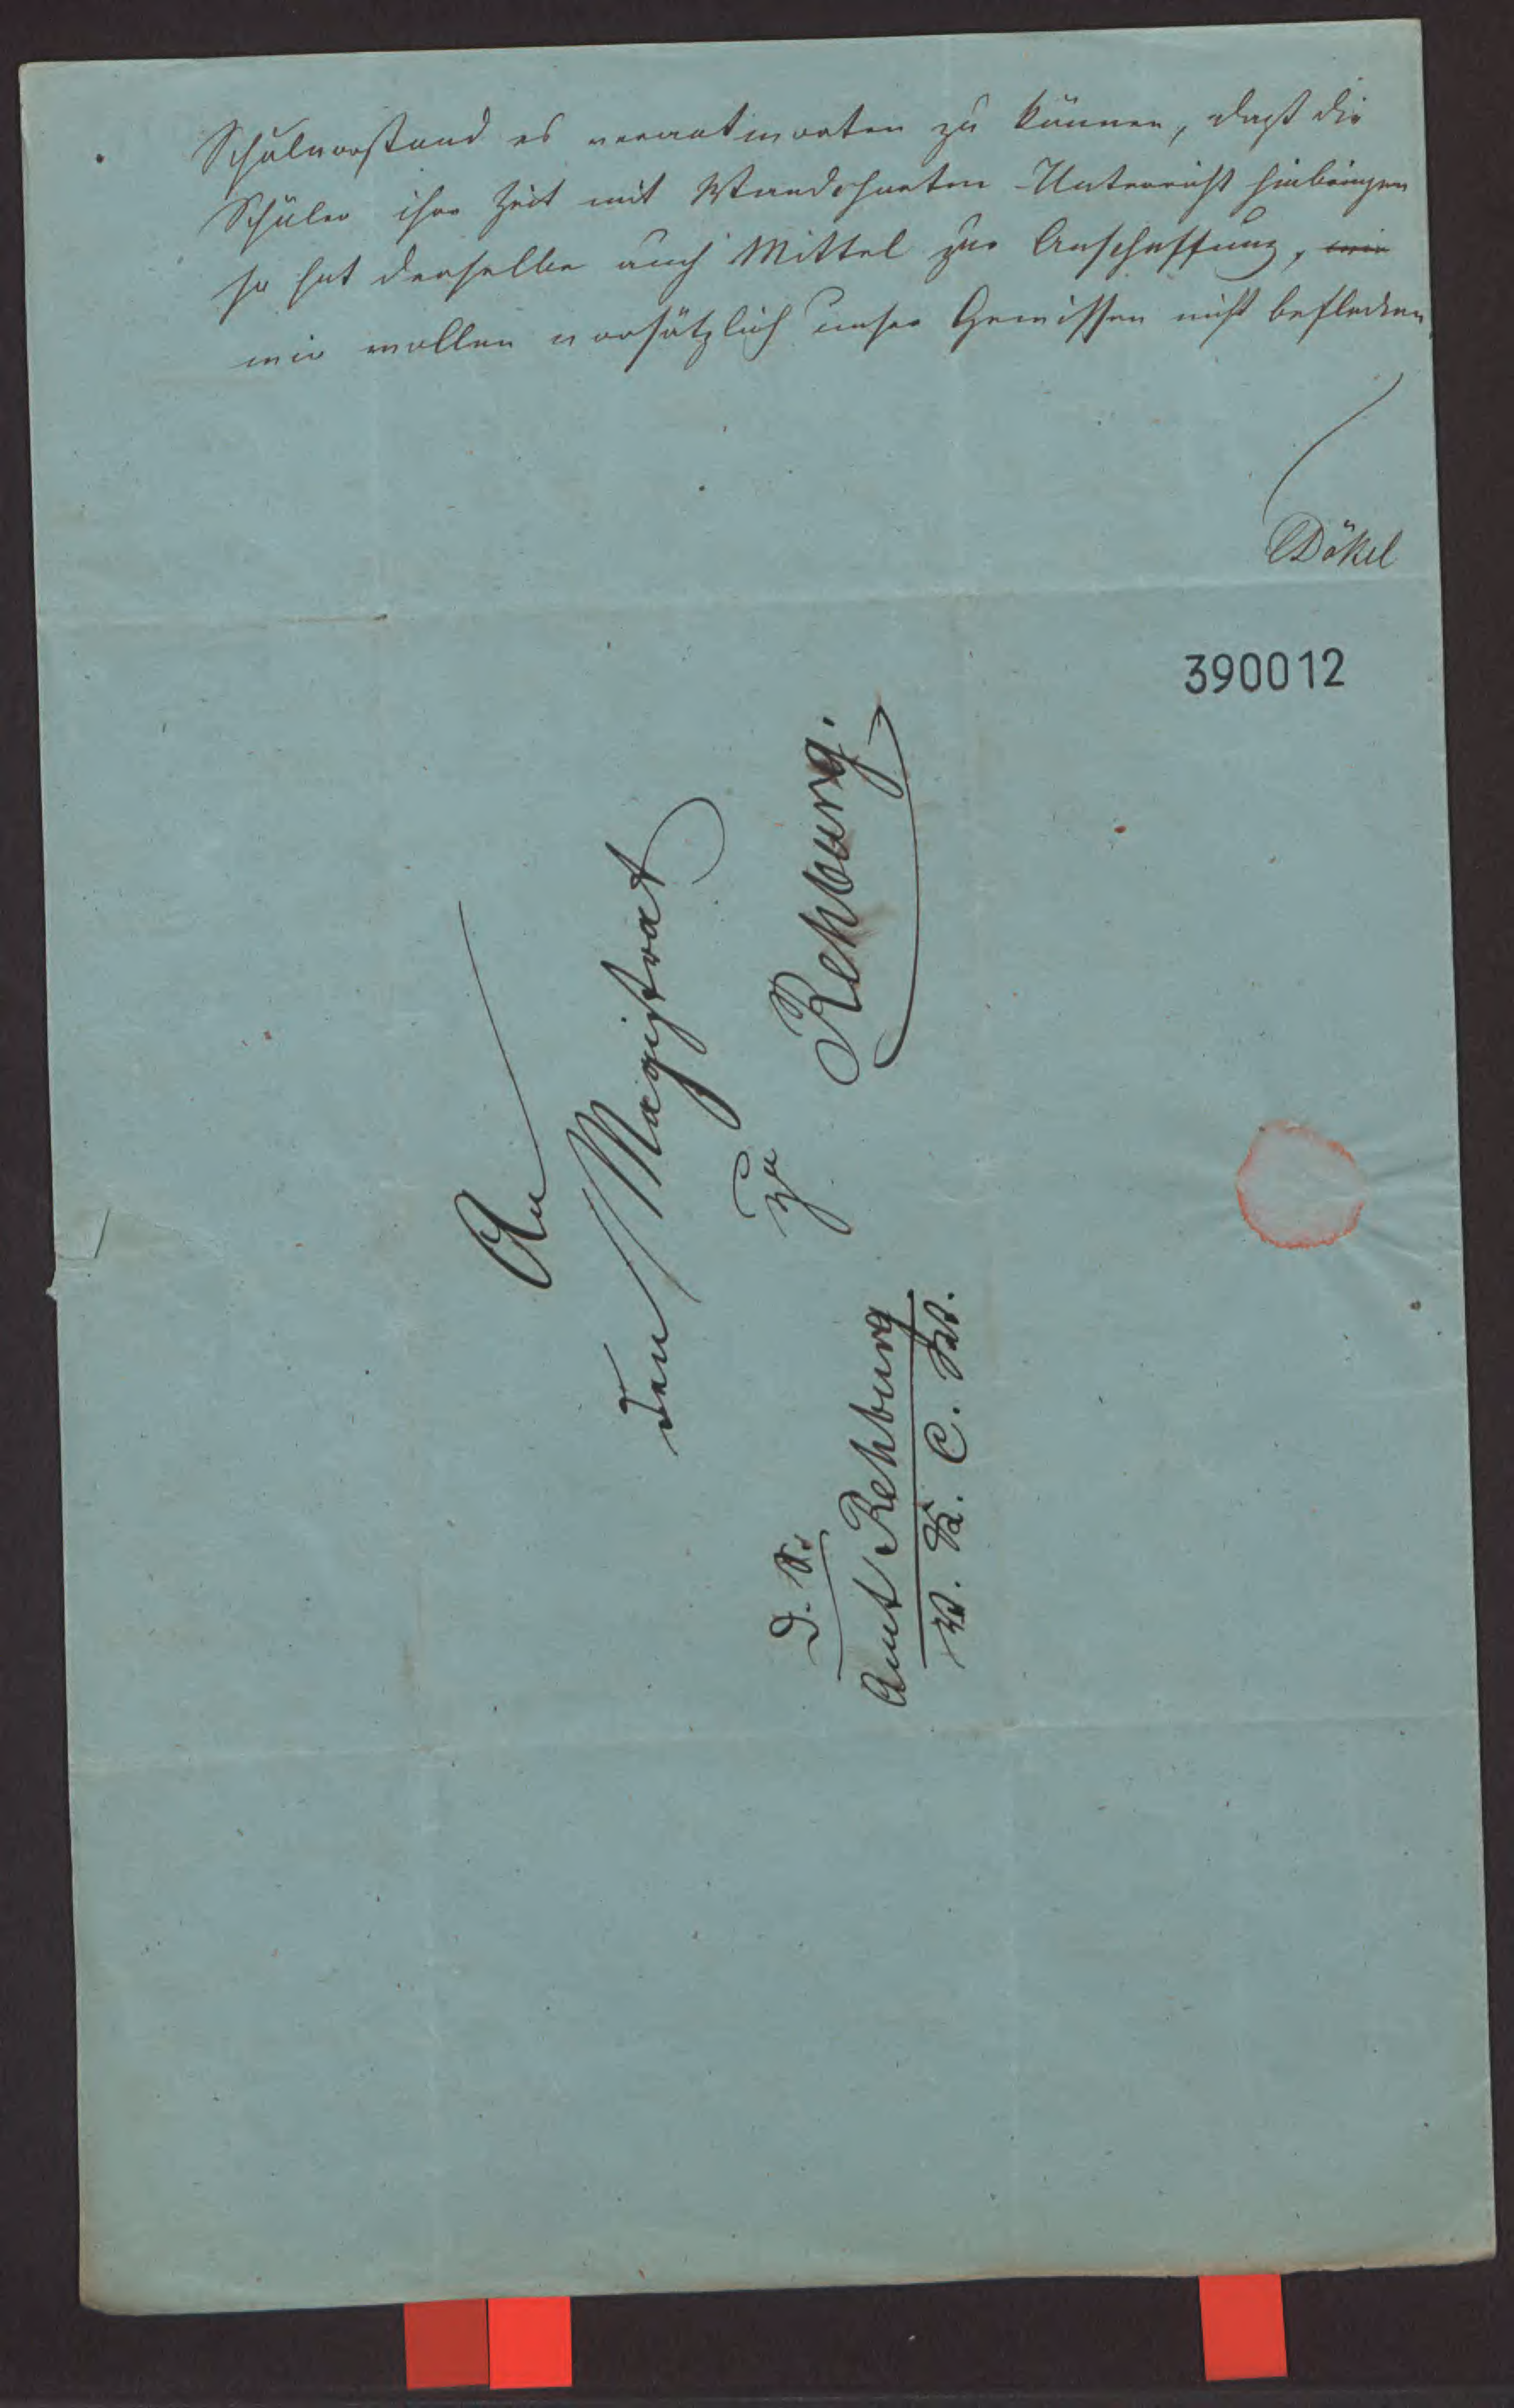 Schulvorstand es verantworten zu können, daß die
Schüler ihre Zeit mit Wandcharten-Unterricht hinbringen
so hat derselbe auch Mittel zur Anschaffung, wir
wir wollen vorsätzlich unser Gewissen nicht beflecken
Dökel
390012
An
den Magistrat
zu
Rehburg.
D. S.
Amt Rehburg